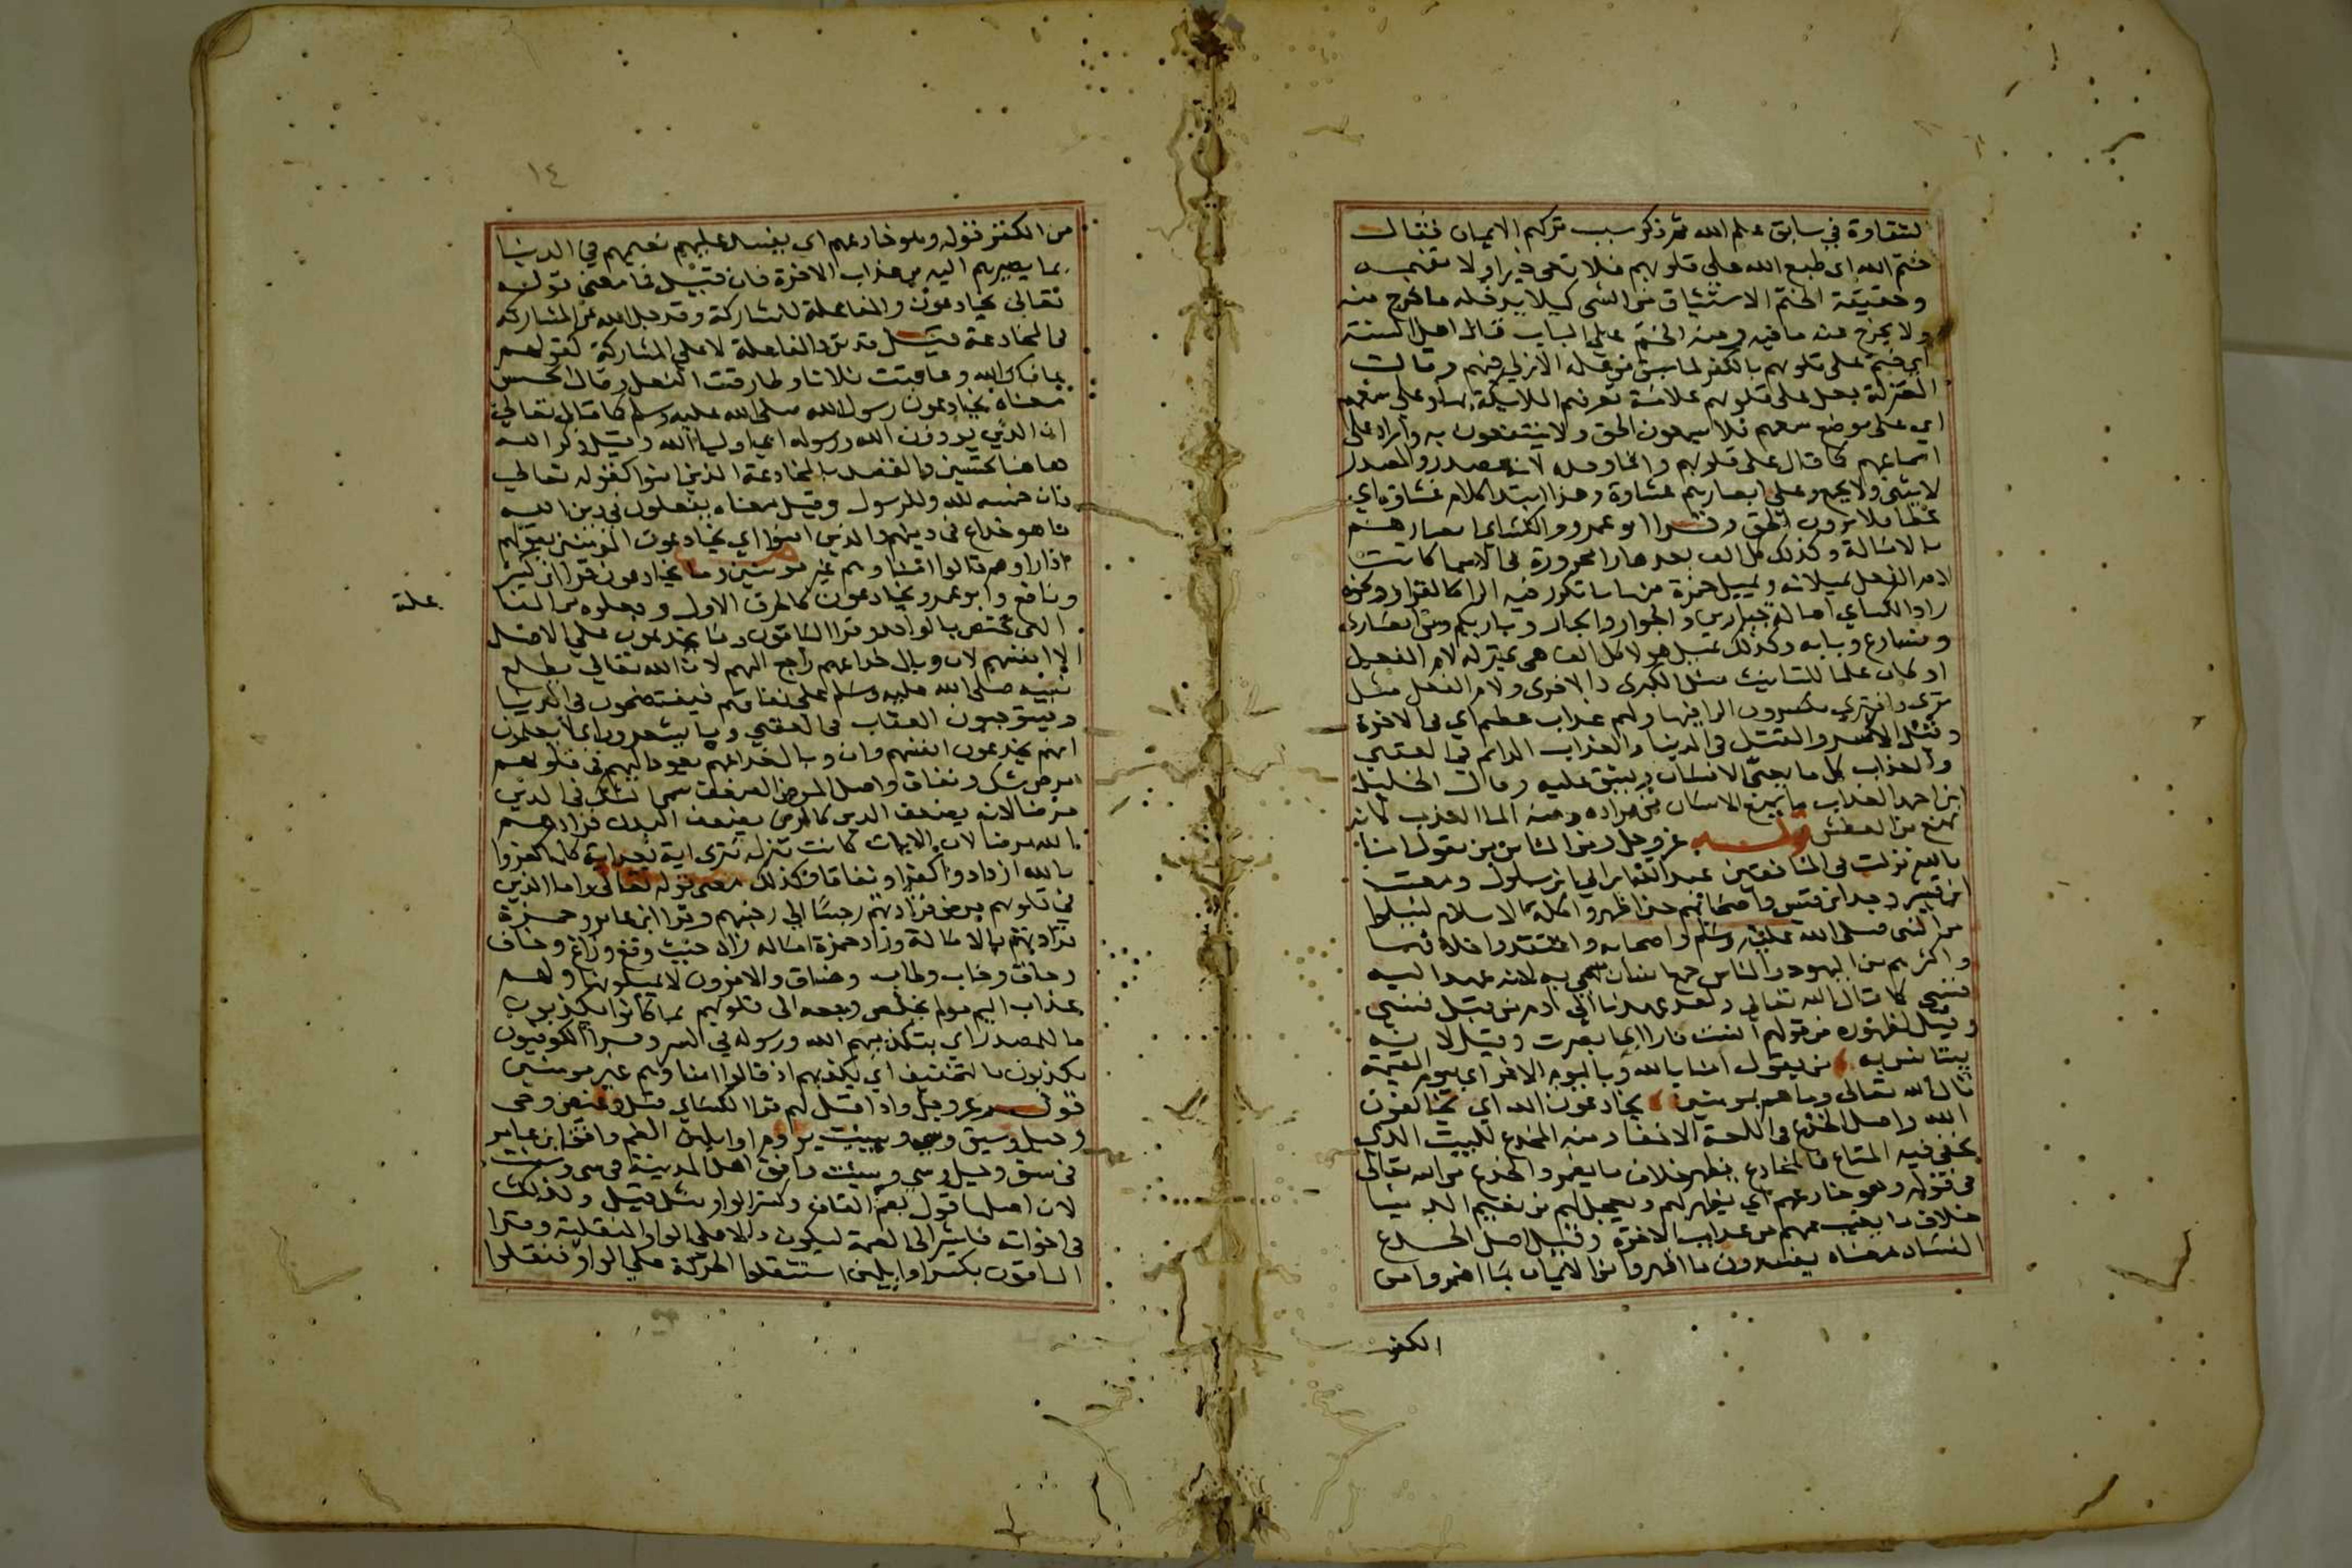 الشقاوة في سابق علم الله ثم ذكر سبب تركهم الايمان فقال
ختم الله اى طبع الله على قلوبهم فلا تعى خيرا ولا تفهمه
وحقيقة الختم الاستيثاق من الشى كيلا يدخله ما خرج منه
ولا يخرج عنه ما فيه ومنه الختم على الباب قال اهل السنة
اي ختم على قلوبهم بالكفر لما سبق من علمه الازلي فيهم وقالت
المعتزلة جعل على قلوبهم علامة تعرفهم الملايكة بها وعلى سمعهم
اي على موضع سمعهم فلا يسمعون الحق ولا ينتفعون به واراد على
اسماعهم كما قال على قلوبهم وانما وحده لانه مصدر والمصدر
لا يثنى ولا يجمع وعلى ابصارهم غشاوة وهذا ابتدا كلام غشاوة اي
غطا فلا يرون الحق وقرا ابو عمرو والكسائي ابصارهم
بالامالة وكذلك كل الف بعدها را مجرورة في الاسما كانت
لام الفعل يميلانها ويميل حمزة منها ما تكرر فيه الرا كالقرار ونحوه
زاد الكساي امالة جبارين والجوار والجار وباريكم ومن انصارى
ونسارع وبابه وكذلك يميل هولا كل الف هى بمنزلة لام الفعل
او كان علما للتانيث مثل الكبرى والاخرى ولام الفعل مثل
ترى وافترى يكسرون الرا فيها ولهم عذاب عظيم اي في الاخرة
وقيل الاسر والقتل في الدنيا والعذاب الدايم في العقبي
والعذاب كل ما يعنى الانسان ويشق عليه وقال الخليل
ابن احمد العذاب ما يمنع الانسان من مراده ومنه الما العذب لانه
يمنع من العطش قوله عز وجل ومن الناس من يقول امنا
بالله نزلت في المنافقين عبد الله بن ابي بن سلول ومعتب
ابن قشير وجد ابن قيس واصحابهم حين اظهروا كلمة الاسلام ليسلموا
من النبى صلى الله عليه وسلم واصحابه واعتقدوا خلافها
واكثرهم من اليهود والناس جمع انسان سمي به لانه عهد اليه
فنسي كما قال الله تعالى ولقد عهدنا الى ادم من قبل فنسي
وقيل لظهوره من قولهم انست نارا اي ابصرت وقيل لانه
يستانس به من يقول امنا بالله وباليوم الاخر اي بيوم القيمة
قال الله تعالى وما هم بمومنين يخادعون الله اي يخالفون
الله واصل الخدع في اللغة الاخفا ومنه المخدع للبيت الذى
يخفى فيه المتاع فالمخادع يظهر خلاف ما يضمر والخدع من الله تعالى
في قوله وهو خادعهم اي يظهر لهم ويعجل لهم من نعيم الدنيا
خلاف ما يغيب عنهم من عذاب الاخرة وقيل اصل الخدع
الفساد معناه يفسدون ما اظهروا من الايمان بما اضمروا من
الكفر
١٤
من الكفر قوله وهو خادعهم اي يفسد عليهم نعيمهم في الدنيا
بما يصيرهم اليه من عذاب الاخرة فان قيل فما معنى قوله
تعالى يخادعون والمفاعلة للمشاركة وقد جل الله عن المشاركة
في المخادعة قيل قد ترد المفاعلة لا على المشاركة كقولهم
عافاك الله وعاقبت فلانا وطارقت النعل وقال الحسن
معناه يخادعون رسول الله صلى الله عليه وسلم كما قال تعالى
ان الذين يوذون الله ورسوله اي اوليا الله وقيل ذكر الله
هاهنا تحسين والقصد بالمخادعة الذين امنوا كقوله تعالى
فان خمسه لله وللرسول وقيل معناه يفعلون في دين الله
ما هو خداع في دينهم والذين امنوا اي يخادعون المومنين بقولهم
اذا راوهم قالوا امنا وهم غير مومنين وما يخادعون قرا ابن كثير
ونافع وابو عمرو يخادعون كالحرف الاول وجعلوه من المفا
علة
التى تختص بالواحد وقرا الباقون وما يخدعون على الاصل
الا انفسهم لان وبال خداعهم راجع اليهم لان الله تعالى يطلع
نبيه صلى الله عليه وسلم على نفاقهم فيفتضحون في الدنيا
ويستوجبون العقاب في العقبي وما يشعرون اى لا يعلمون
انهم يخدعون انفسهم وان وبال خداعهم يعود اليهم في قلوبهم
مرض شك ونفاق واصل المرض الضعف سمى الشك في الدين
مرضا لانه يضعف الدين كالمرض يضعف البدن فزادهم
الله مرضا لان الايات كانت تنزل تترى اية بعد اية كلما كفروا
بالله ازدادوا كفرا ونفاقا وكذلك معنى قوله تعالى واما الذين
في قلوبهم مرض فزادتهم رجسا الى رجسهم وقرا ابن عامر وحمزة
فزادتهم بالامالة وزاد حمزة امالة زاد حيث وقع وزاغ وخاف
وحاق وخاب وطاب وضاق والاخرون لا يميلونها ولهم
عذاب اليم مولم يخلص وجعه الى قلوبهم بما كانوا يكذبون
ما للمصدر اي بتكذيبهم الله ورسوله في السر وقرا الكوفيون
يكذبون بالتخفيف اي يكذبهم اذ قالوا امنا وهم غير مومنين
قوله عز وجل واذا قيل لهم قرا الكساي قيل وغيض وجى
وحيل وسيق وسى وسيئت بروم اوايلهن الضم وافق ابن عامر
في سيق وحيل وسي وسيئت وافق اهل المدينة في سى وسيت
لان اصلها قول بضم القاف وكسر الواو مثل قتل وكذلك
في اخواته فاشير الى الضمة ليكون دالا على الواو المنقلبة وقرا
الباقون بكسر اوايلهن استثقلوا الحركة على الواو فنقلوا